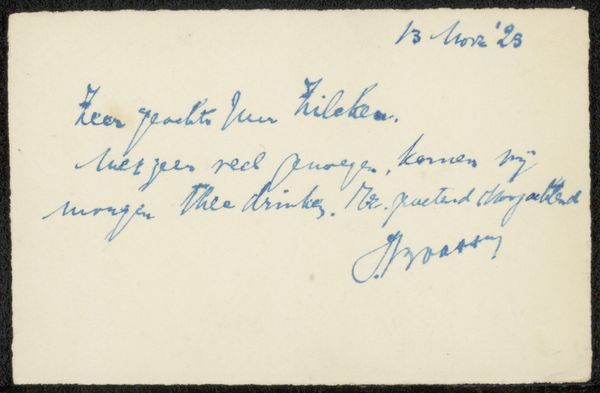 13 Nov '23
Zeer geachte Heer Zilcken.
Met zeer veel genoegen, komen wij
morgen thee drinken. groetend Hoogachtend